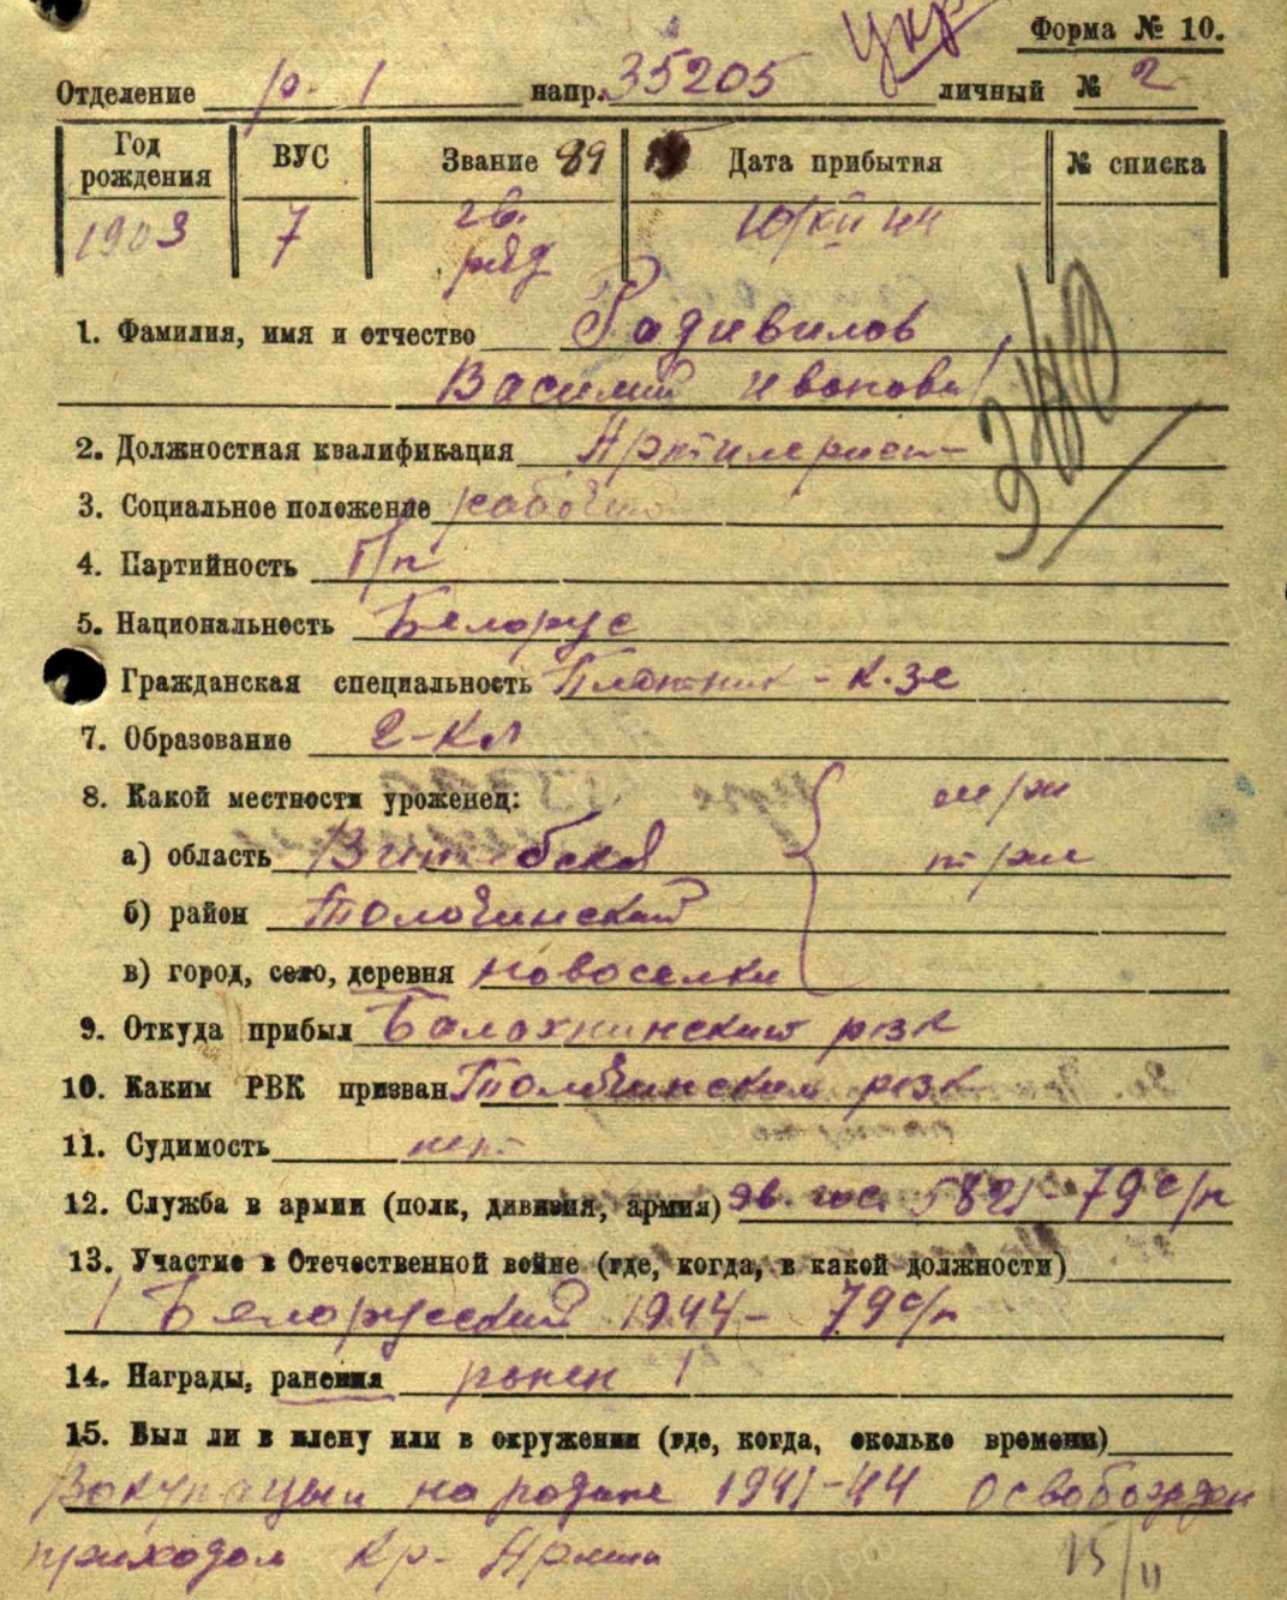 Укр
Форма № 10.
Отделение р. 1 напр. 35205 личный № 2
Год рождения ВУС Звание 89 Дата прибытия № списка
1903 7 гв. ряд 10/XII 44
1. Фамилия, имя и отчество Радивилов
Василий Иванович
2. Должностная квалификация Артилерист
3. Социальное положение рабочий
4. Партийность б/п
5. Национальность Белорус
Гражданская специальность Плотник - к.з-е
7. Образование 2-кл
8. Какой местности уроженец:
а) область Витебская
б) район Толочинский
в) город, село, деревня Новоселки
9. Откуда прибыл Балахнинский рвк
10. Каким РВК призван Толочинским рвк
11. Судимость нет
12. Служба в армии (полк, дивизия, армия) эв. гос. 5821 - 79 с/п
13. Участие в Отечественной войне (где, когда, в какой должности)
1 Белорусский 1944 - 79 с/п
14. Награды, ранения ранен 1
15. Был ли в плену или в окружении (где, когда, сколько времени)
В окупацыи на родине 1941-44 освобожден
приходом Кр- Армии 15/II